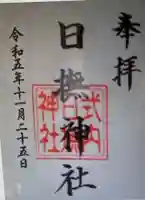 奉拝
日撫神社
式内
日撫
神社
令和五年十一月二十五日